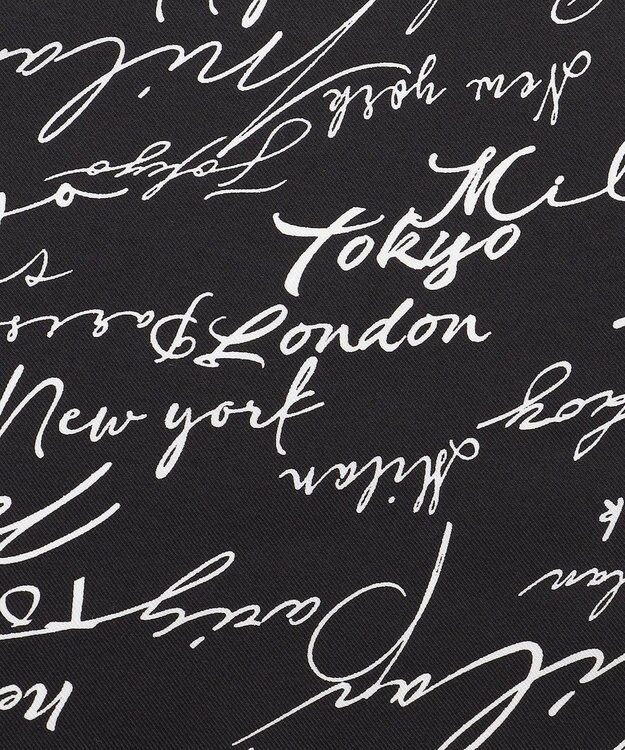 Milan
New york
Tokyo
Mil
Tokyo
Paris
London
New york
Milan
lan
Paris
To
ilan
ne